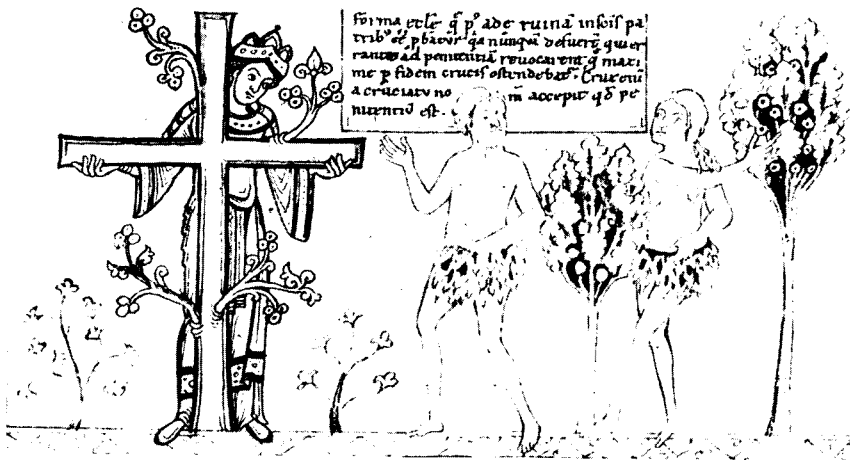 forma etcłē q̄ pꝰ ade ruinā in scis pa
tribꝰ pbatur qa nunquā defuer̄t qui er
rantes ad penitentiā revocarent q̄ maxi
me p fidem crucis ostendebat. Crux eni
a cruciatu no m accepit qd pe
nitentiū est.